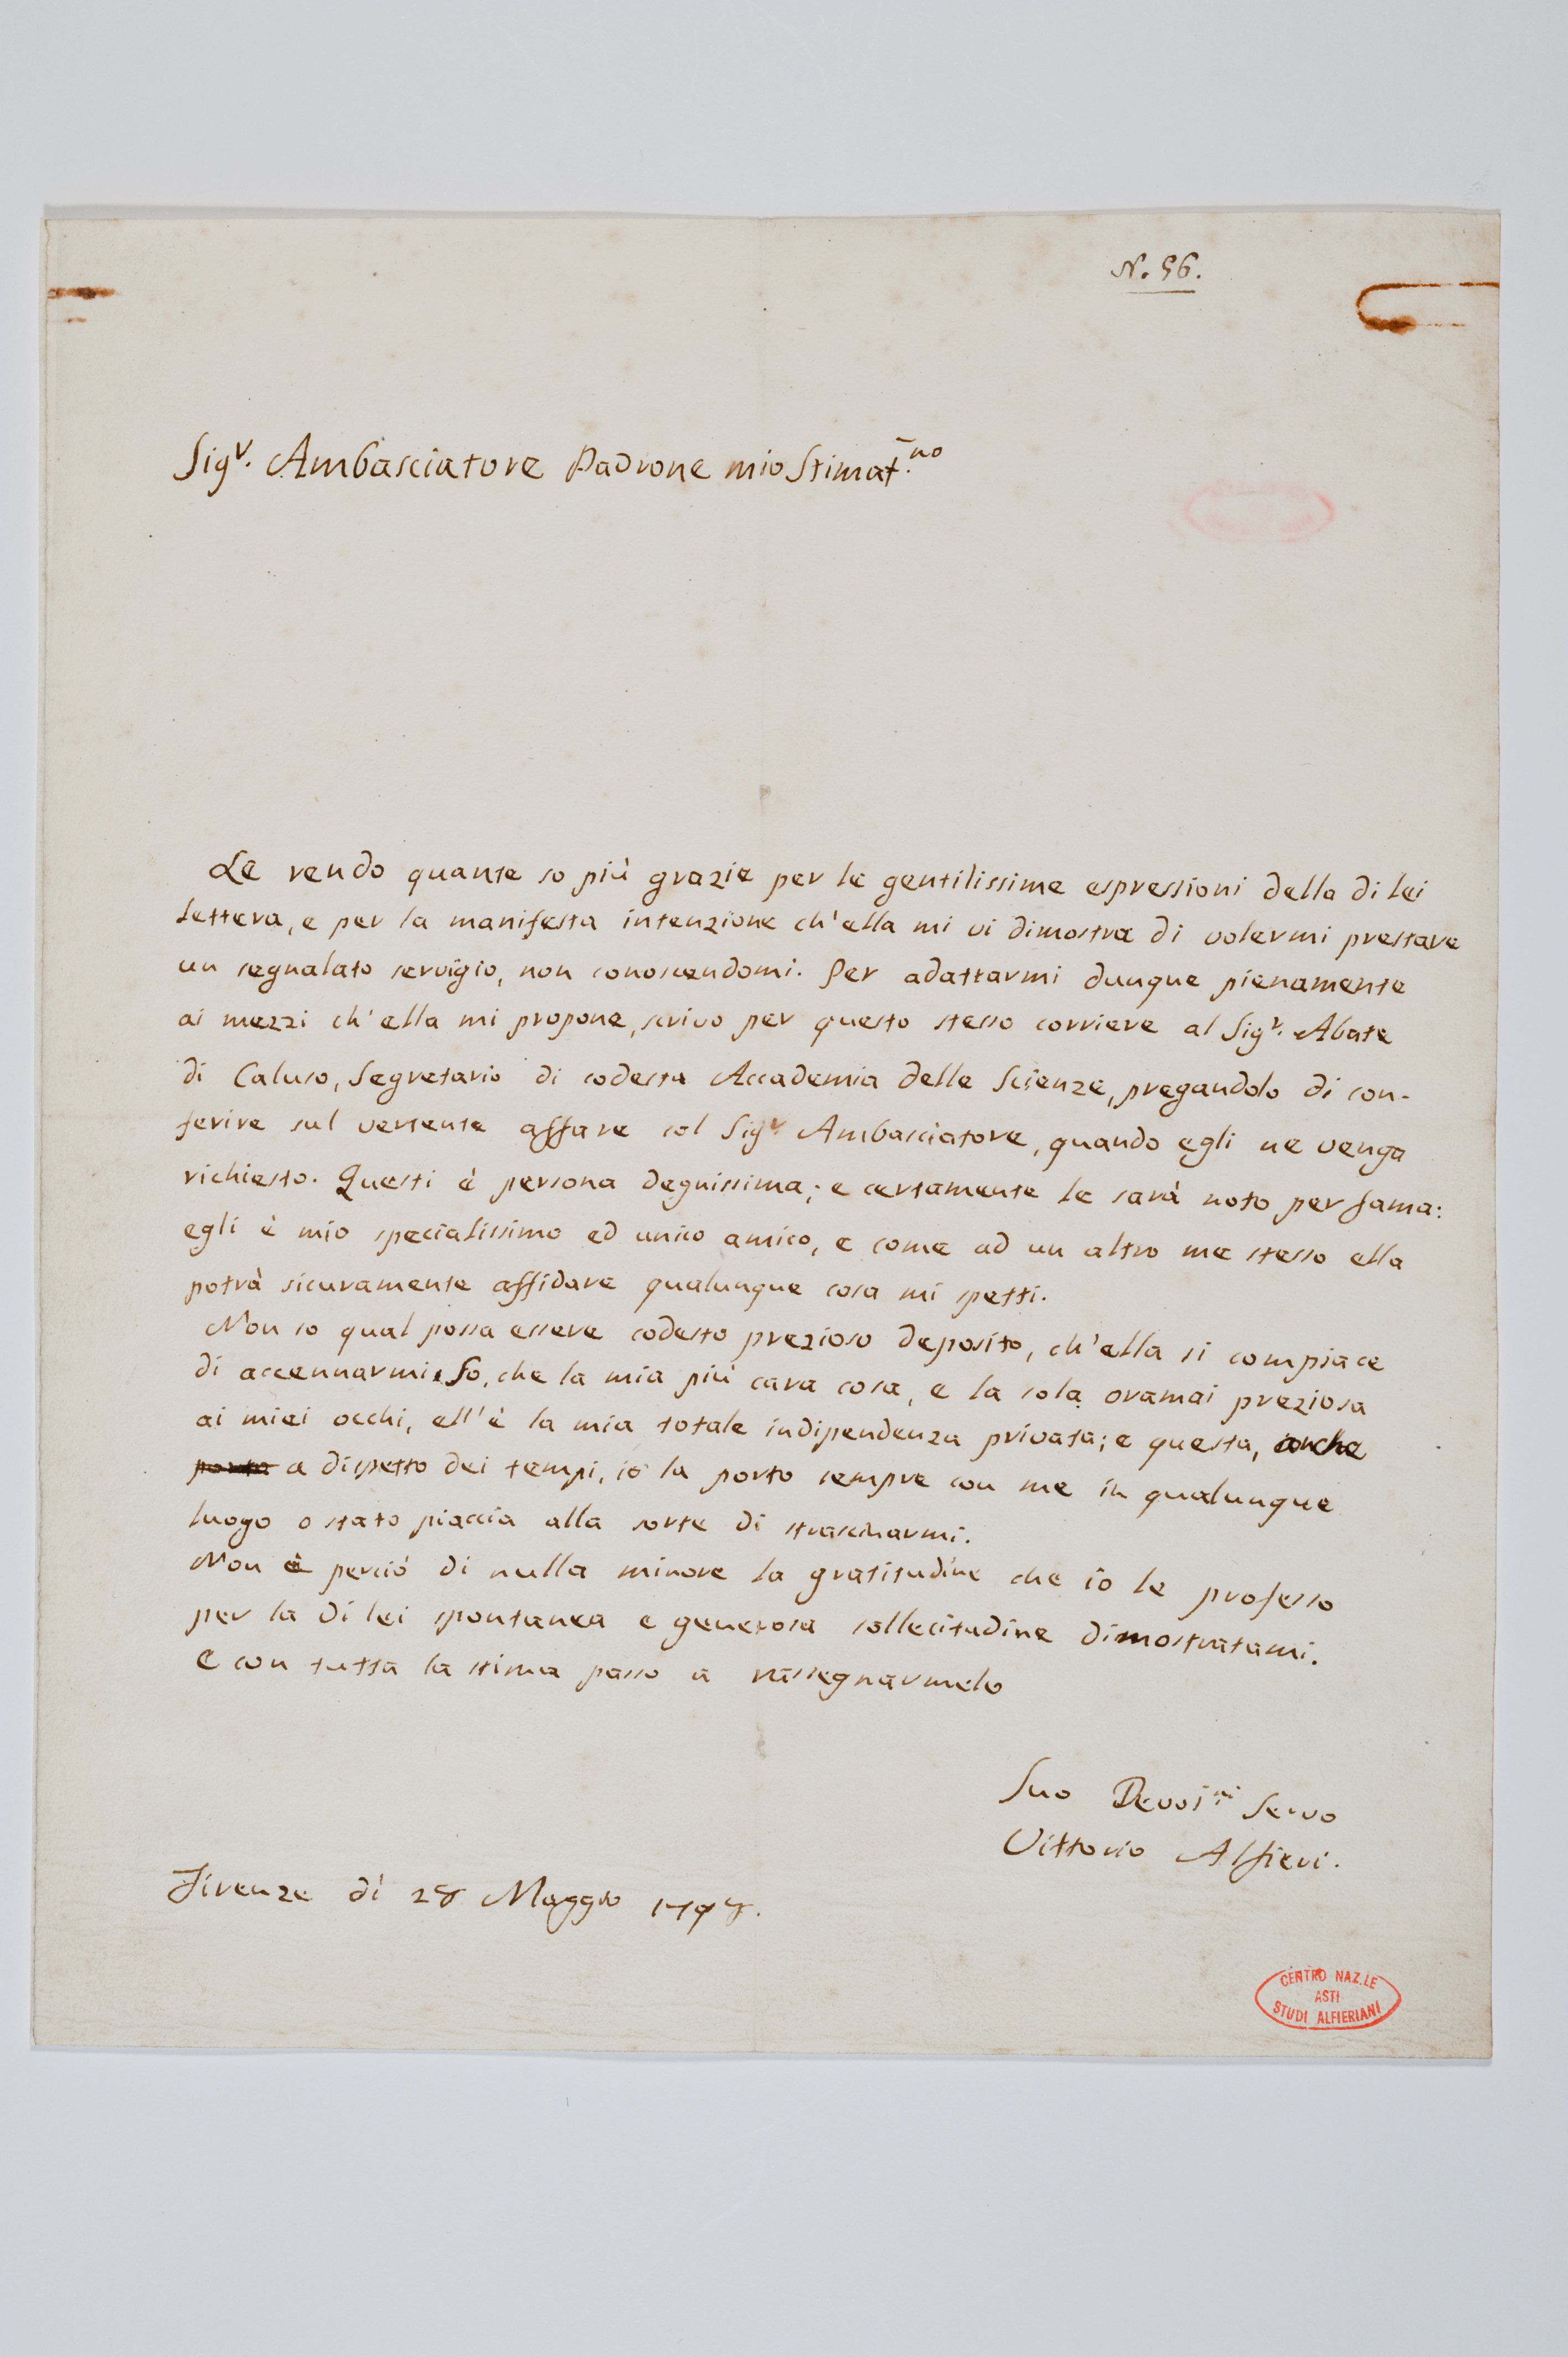 N. 56.
Sig.r Ambasciatore Padrone mio Stimat.mo
Le rendo quante so più grazie per le gentilissime espressioni della di lei
lettera, e per la manifesta intenzione ch'ella mi vi dimostra di volermi prestare
un segnalato servigio, non conoscendomi. Per adattarmi dunque pienamente
ai mezzi ch'ella mi propone, scrivo per questo stesso corriere al Sig.r Abate
di Caluso, Segretario di codesta Accademia delle Scienze, pregandolo di con-
ferire sul vertente affare col Sig.r Ambasciatore, quando egli ne venga
richiesto. Questi è persona degnissima; e certamente le sarà noto per fama:
egli è mio specialissimo ed unico amico, e come ad un altro me stesso ella
potrà sicuramente affidare qualunque cosa mi spetti.
Non so qual possa essere codesto prezioso deposito, ch'ella si compiace
di accennarmi. So, che la mia più cara cosa, e la sola oramai preziosa
ai miei occhi, ell'è la mia totale indipendenza privata; e questa, anche
a dispetto dei tempi, io la porto sempre con me in qualunque
luogo o stato piaccia alla sorte di strascinarmi.
Non è perciò di nulla minore la gratitudine che io le professo
per la di lei spontanea e generosa sollecitudine dimostratami.
E con tutta la stima passo a rassegnarmele
Suo Devos.mo Servo
Vittorio Alfieri.
Firenze dì 28 Maggio 1798.
CENTRO NAZ.LE
ASTI
STUDI ALFIERIANI